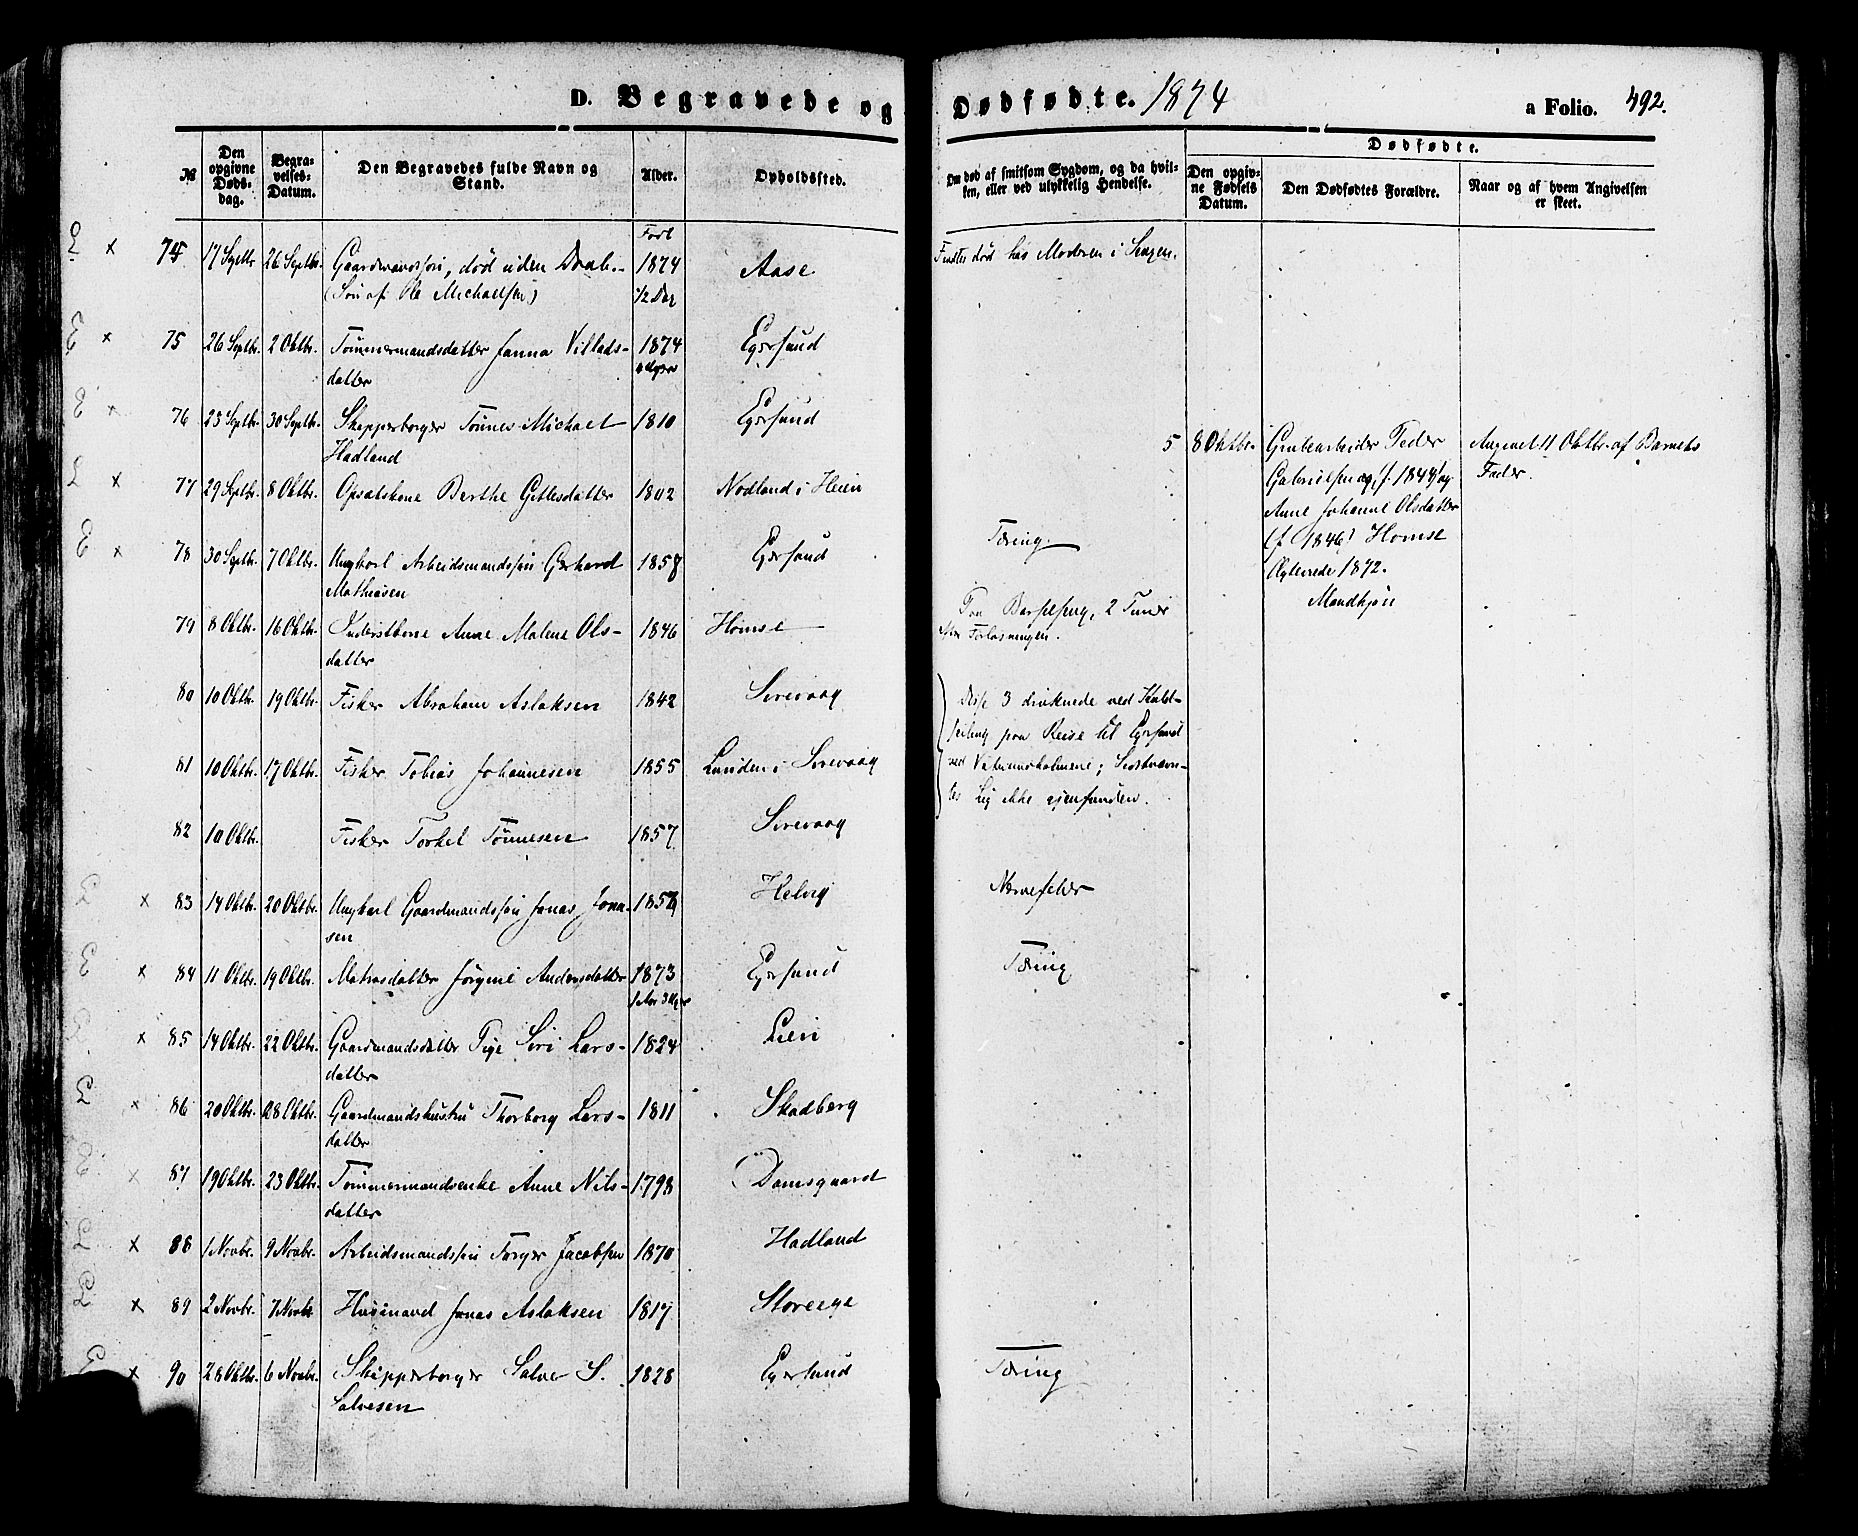 D. Begravede og Dødfødte. 1874 a Folio. 492.
Dødfødte.
№ Den opgivne Dødsdag. Begravelses-Datum. Den Begravedes fulde Navn og Stand. Alder. Opholdssted. Om død af smitsom Sygdom, og da hvilken, eller ved ulykkelig Hendelse. Den opgivne Fødsels Datum. Den Dødfødtes Forældre. Naar og af hvem Angivelsen er skeet.
74 17 Septbr 26 Septbr. Gaardmandssøn, død uden Daab. Født 1874 Aase Fandtes død hos Moderen i Sengen.
(Søn af Ole Michaelsen) 1/2 Dag
E x 75 26 Septbr. 2 Oktbr. Tømmermandsdatter Janna Villads- 1874 Egersund
datter
E x 76 25 Septbr. 30 Septbr. Skipperborger Tønnes Michael 1810 Egersund
Hadland
5 8 Oktbr. Grubearbeider Peder Angivet 11 Oktbr. af Barnets
Gabrielsen (f. 1844) og Fader.
Anne Johanne Olsdatter
(f. 1846) Homse
Ægteviede 1872.
Mandkjøn
x 77 29 Septbr. 8 Oktbr. Berthe Gittesdatter 1802 Nodland i Heien
E x 78 30 Septbr. 7 Oktbr. Ungkarl Arbeidsmandssøn Gerhard 1857 Egersund Tæring.
Mathiasen
79 8 Oktbr. 16 Oktbr. Inderstkone Anne Malene Ols- 1846 Homse Paa Barselseng, 2 Timer
datter efter Forløsningen.
80 10 Oktbr. 19 Oktbr. Fisker Abraham Aslaksen 1842 Sirevaag Disse 3 druknede ved Kuld-
seiling paa Reise til Egersund
81 10 Oktbr. 17 Oktbr. Fisker Tobias Johannesen 1855 Lunden i Sirevaag ved ; Sidstnævn-
tes Lig ikke gjenfunden.
82 10 Oktbr. Fisker Torkel Tønnesen 1857 Sirevaag
x 83 14 Oktbr. 20 Oktbr. Ungkarl Gaardmandssøn Jonas Jona- Helvig Nervefeber
sen
E x 84 11 Oktbr. 19 Oktbr. Matrosdatter Jørgine Andersdatter 1873 Egersund Tæring
1 Aar 3 Uger
x 85 14 Oktbr. 22 Oktbr. Gaardmandsdatter Pige Siri Lars- 1824 Lien
datter
x 86 20 Oktbr. 28 Oktbr. Gaardmandshustru Thorborg Lars- 1811 Skadberg
datter
E x 87 19 Oktbr. 23 Oktbr. Tømmermandsenke Anne Nils- 1798 Damsgaard
datter
x 88 1 Novbr. 9 Novbr. Arbeidsmandssøn Torger Jacobsen 1870 Hadland
x 89 2 Novbr. 7 Novbr Husmand Jonas Aslaksen 1817 Storeege
E x 90 28 Oktbr. 6 Novbr. Skipperborger Salve S. 1828 Egersund Tæring
Salvesen